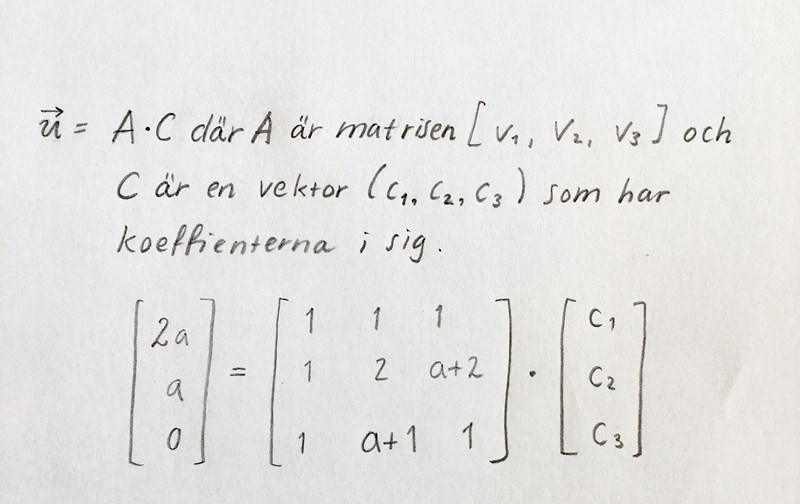 u⃗ = A·C där A är matrisen [ v₁, v₂, v₃ ] och
C är en vektor (c₁, c₂, c₃) som har
koeffienterna i sig.
[ 2a ] [ 1 1 1 ] [ c₁ ]
[ a ] = [ 1 2 a+2 ] · [ c₂ ]
[ 0 ] [ 1 a+1 1 ] [ c₃ ]